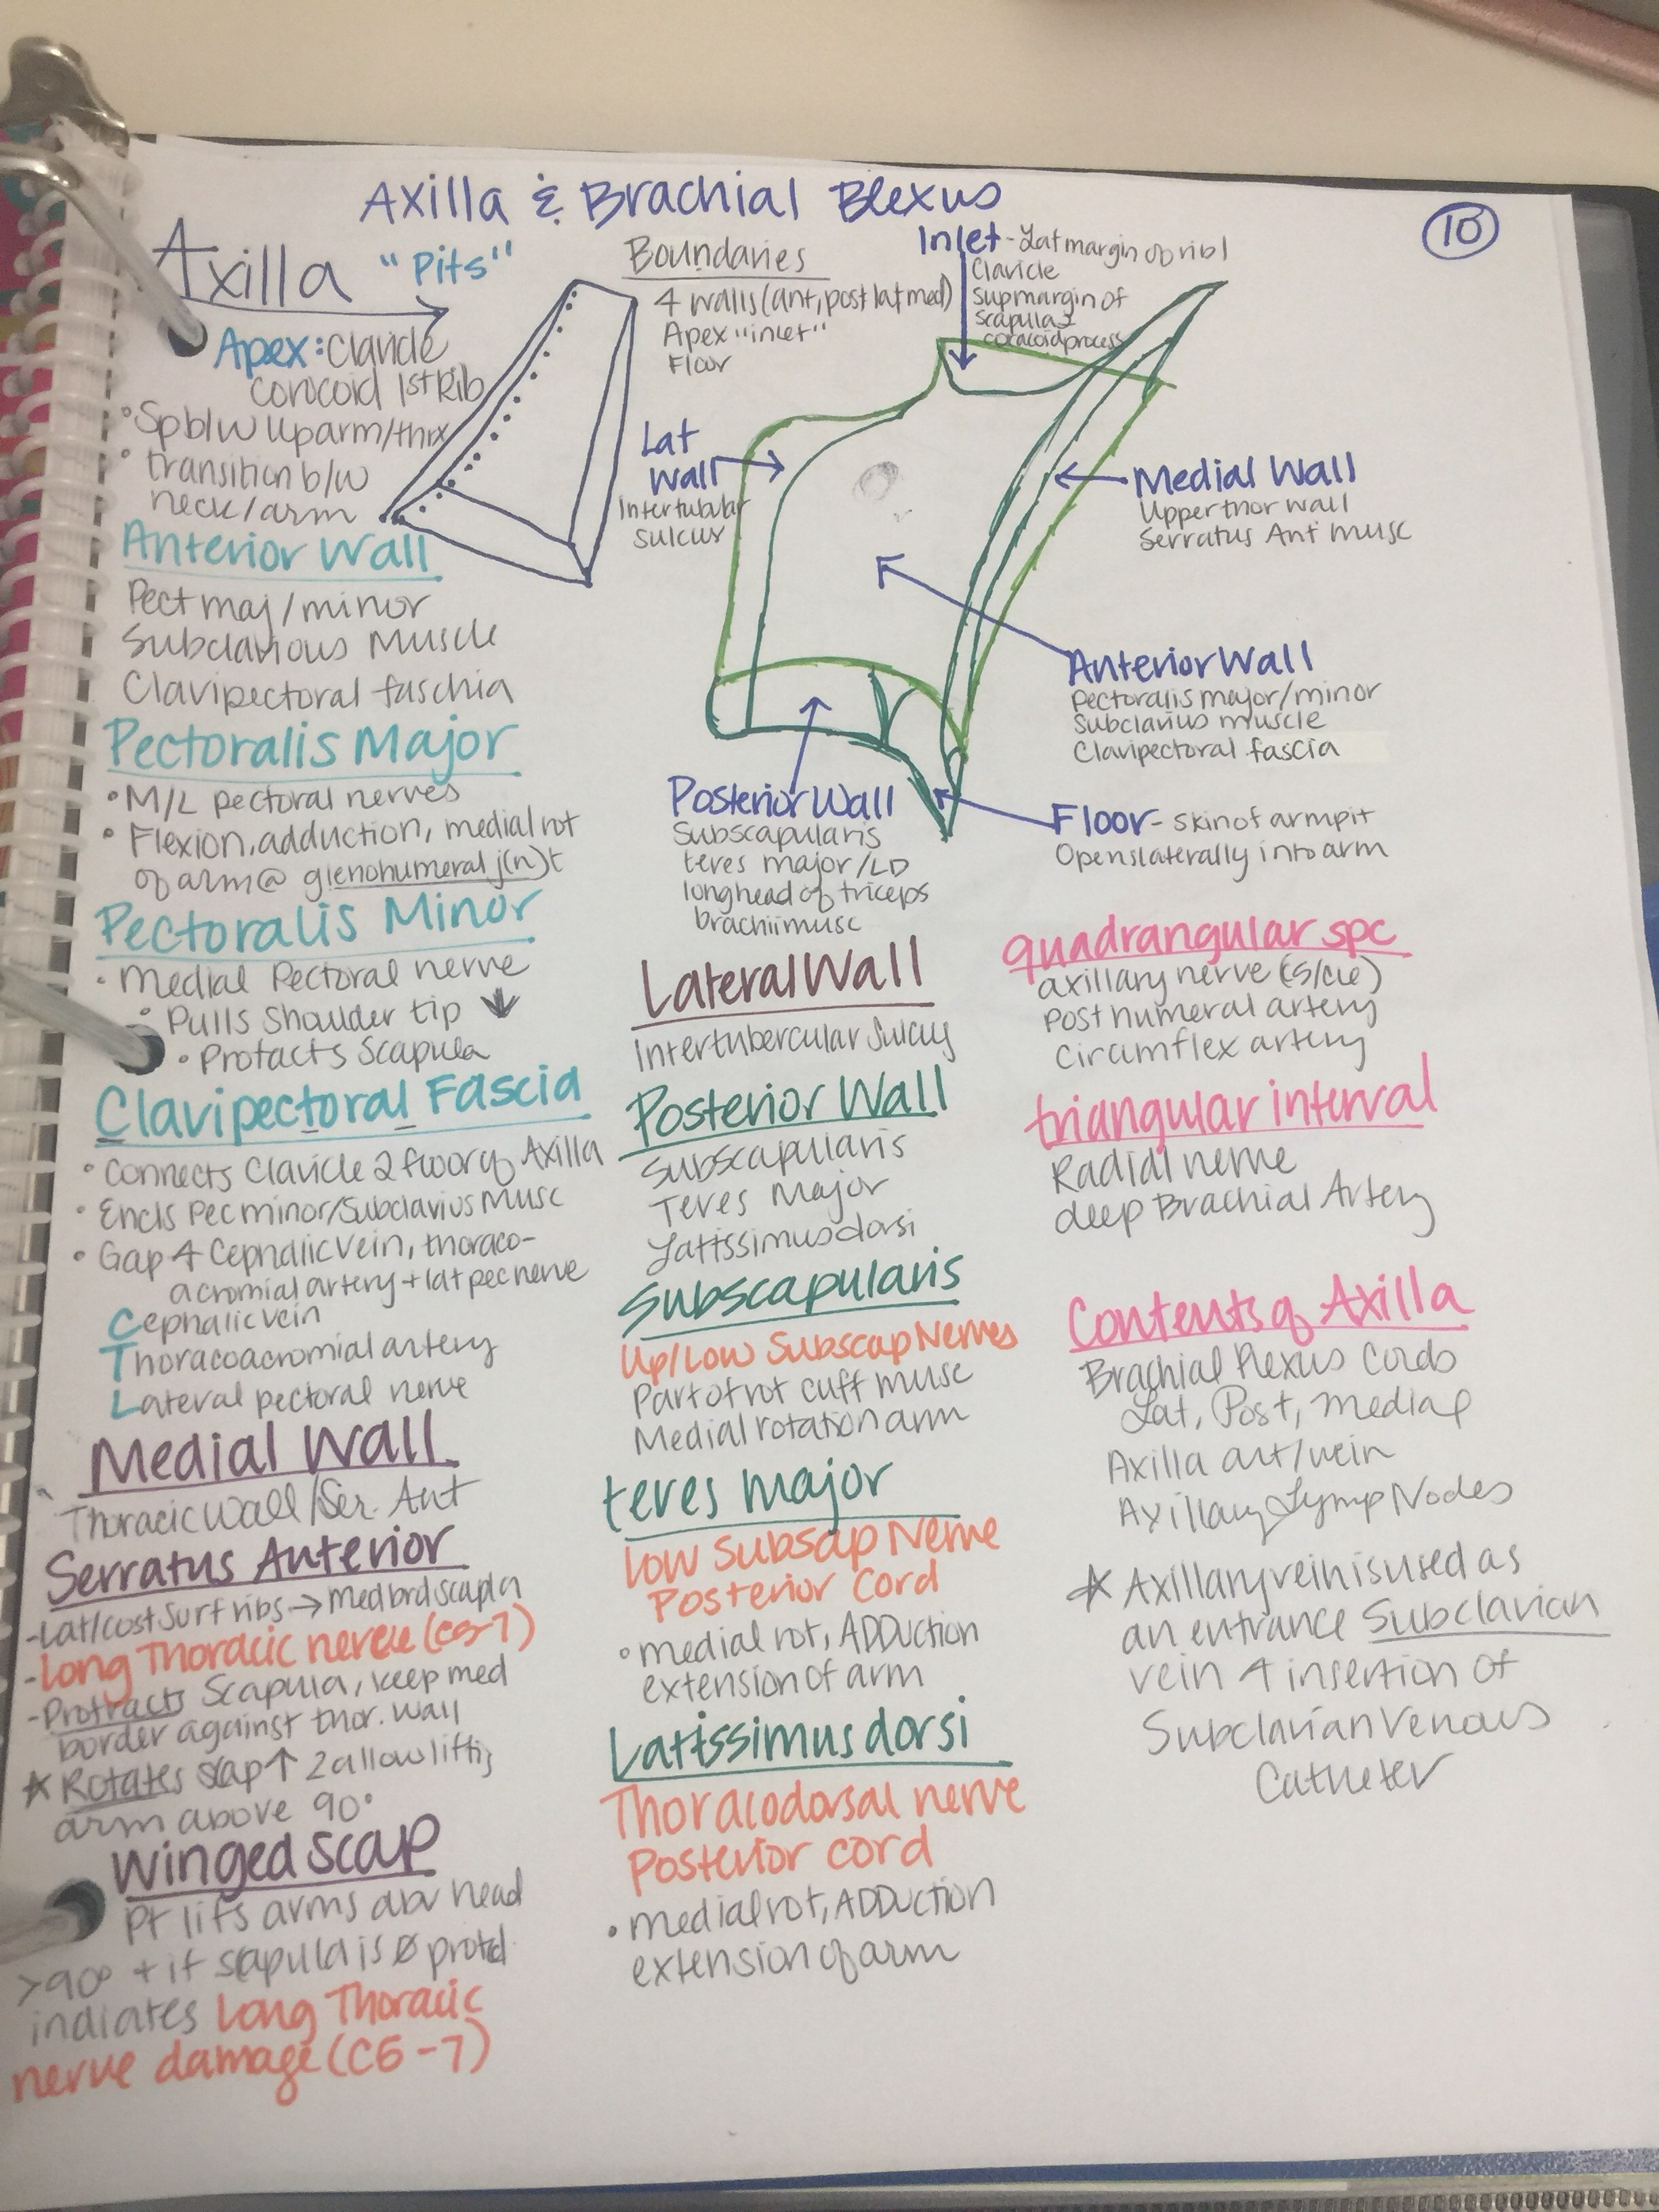 Axilla & Brachial Blexus
10
Axilla "Pits"
Apex: Clavicle
corocoid 1st Rib
Sp b/w Uparm/thrx
transition b/w
neck/arm
Boundaries
4 walls (ant, post lat med)
Apex "inlet"
Floor
Inlet - Lat margin of rib 1
Clavicle
Sup margin of
scapula 2
coracoid process
Lat
Wall
Intertubular
sulcus
Medial Wall
Upper thor wall
Serratus Ant musc
Anterior Wall
Pectoralis major/minor
Subclavius muscle
Clavipectoral fascia
Posterior Wall
Subscapularis
teres major/LD
long head of triceps
brachii musc
Floor - skin of armpit
Opens laterally into arm
Anterior Wall
Pect maj/minor
Subclavious Muscle
Clavipectoral faschia
Pectoralis Major
• M/L pectoral nerves
• Flexion, adduction, medial rot
of arm @ glenohumeral j(n)t
Pectoralis Minor
• Medial Pectoral nerve
• Pulls Shoulder tip ↓
• Protacts Scapula
Clavipectoral Fascia
• Connects Clavicle 2 floor of Axilla
• Encls Pec minor/Subclavius Musc
• Gap 4 Cephalic Vein, thoraco-
acromial artery + lat pec nerve
Cephalic vein
Thoracoacromial artery
Lateral pectoral nerve
Medial Wall
Thoracic Wall/Ser. Ant
Serratus Anterior
- Lat/cost surf ribs → Med brd scapla
- Long Thoracic nerve (C5-7)
- Protracts Scapula, keep med
border against thor. wall
★ Rotates scap ↑ 2 allow lifting
arm above 90°
Winged scap
Pt lifs arms abv head
>90° + if scapula is Ø protd
indiates Long Thoracic
nerve damage (C5-7)
Lateral Wall
Intertubercular Sulcus
Posterior Wall
Subscapularis
Teres Major
Latissimus dorsi
Subscapularis
Up/Low Subscap Nerves
Part of rot cuff musc
Medial rotation arm
teres major
low Subsap Nerve
Posterior Cord
• medial rot, ADDuction
extension of arm
Latissimus dorsi
Thoracodorsal nerve
Posterior cord
• medial rot, ADDuction
extension of arm
quadrangular spc
axillary nerve
Post humeral artery
Circumflex artery
triangular interval
Radial nerve
deep Brachial Artery
Contents of Axilla
Brachial Plexus Cords
Lat, Post, Medial
Axilla art/vein
Axillary Lymp Nodes
★ Axillary vein is used as
an entrance Subclavian
vein 4 insertion of
Subclavian Venous
Catheter